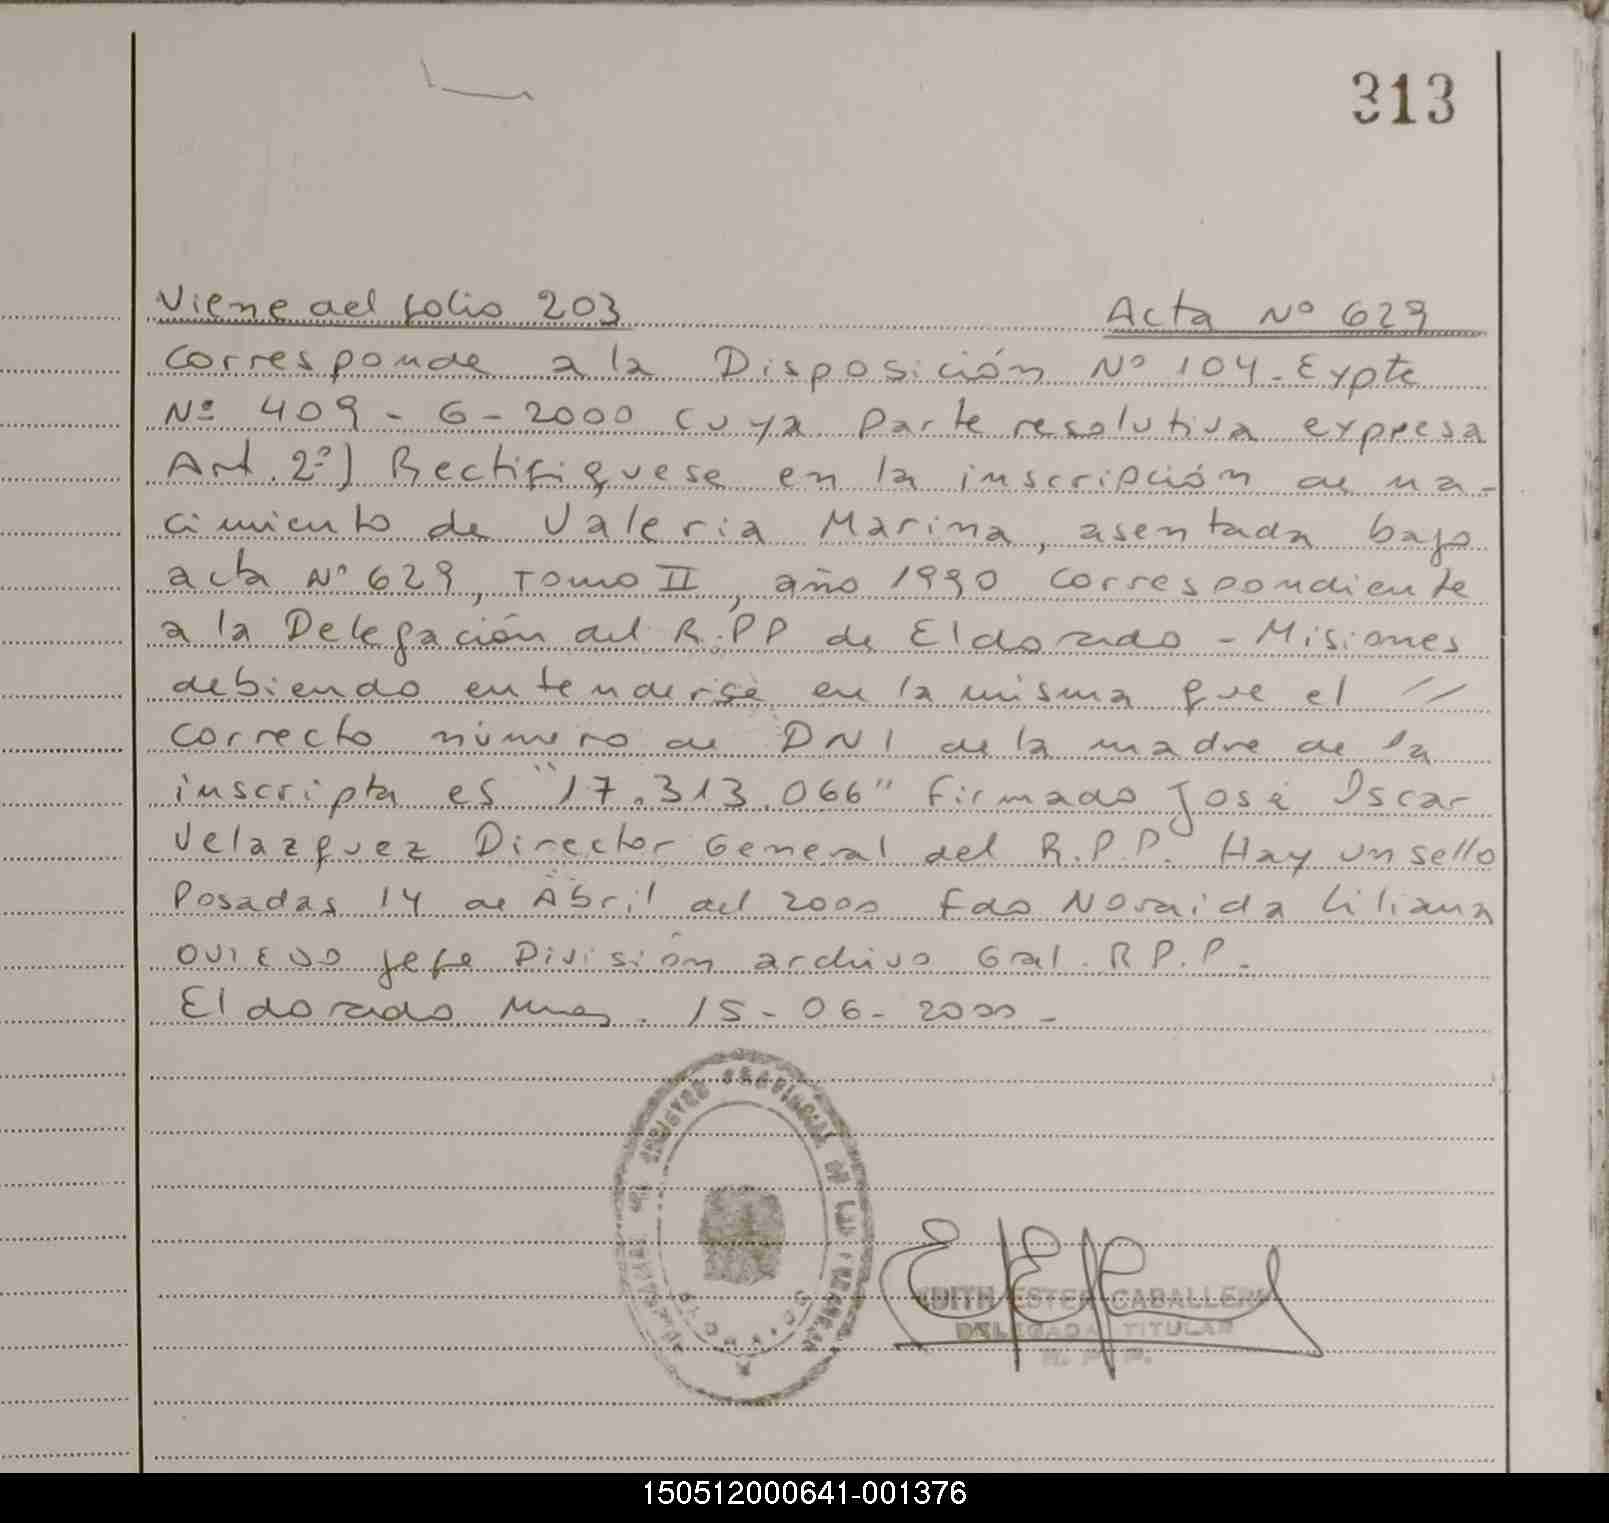 313
Viene del folio 203 Acta Nº 629
Corresponde a la Disposición Nº 104. Expte
Nº 409 - 6 - 2000 cuya parte resolutiva expresa
Art. 2º) Rectifiquese en la inscripción de na-
cimiento de Valeria Marina, asentada bajo
acta Nº 629, Tomo II, año 1990 correspondiente
a la Delegación del R.PP de Eldorado - Misiones
debiendo entenderse en la misma que el //
correcto número de DNI de la madre de la
inscripta es "17.313.066" firmado José Oscar
Velazquez Director General del R.P.P. Hay un sello
Posadas 14 de Abril del 2000 Fdo Noraida Liliana
Oviedo jefe División archivo Gral. R P.P.
Eldorado Mnes. 15-06-2000-
REGISTRO PROVINCIAL DE LAS PERSONAS
ELDORADO
EDITH ESTER CABALLERO
DELEGADA TITULAR
R. P. P.
150512000641-001376